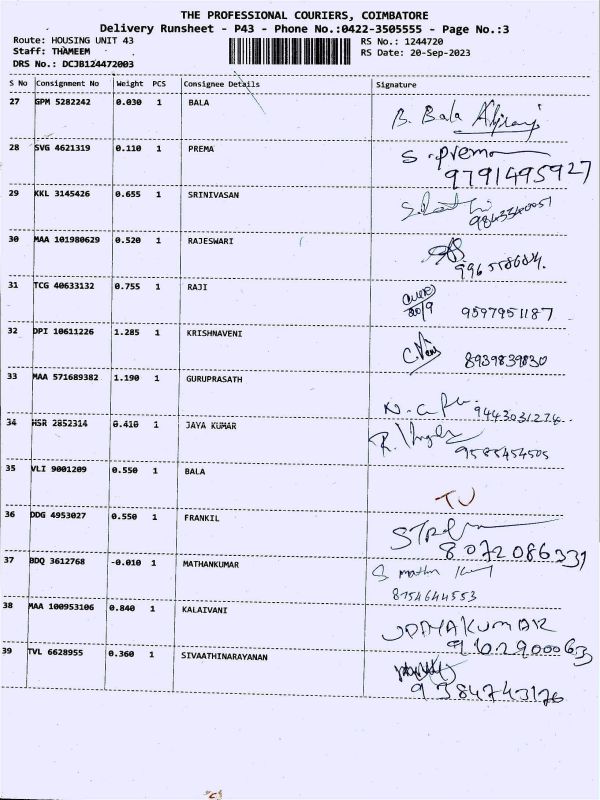 THE PROFESSIONAL COURIERS, COIMBATORE
Delivery Runsheet - P43 - Phone No.:0422-3505555 - Page No.:3
Route: HOUSING UNIT 43 RS No.: 1244720
Staff: THAMEEM RS Date: 20-Sep-2023
DRS No.: DCJB124472003
S No Consignment No Weight PCS Consignee Details Signature
27 GPM 5282242 0.030 1 BALA B. Bala
28 SVG 4621319 0.110 1 PREMA S.prema
9791495927
29 KKL 3145426 0.655 1 SRINIVASAN
30 MAA 101980629 0.520 1 RAJESWARI
31 TCG 40633132 0.755 1 RAJI
20/9 9597951187
32 DPI 10611226 1.285 1 KRISHNAVENI
8939839830
33 MAA 571689382 1.190 1 GURUPRASATH
9443031274
34 HSR 2852314 0.410 1 JAYA KUMAR
9585454505
35 VLI 9001209 0.550 1 BALA
TU
36 DDG 4953027 0.550 1 FRANKIL
8072086331
37 BDQ 3612768 -0.010 1 MATHANKUMAR
8754644553
38 MAA 100953106 0.840 1 KALAIVANI
UDHAYAKUMAR
39 TVL 6628955 0.360 1 SIVAATHINARAYANAN
9384743176